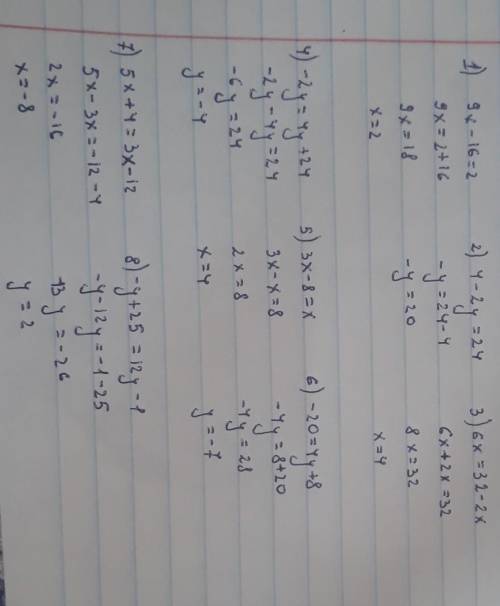 1) 9x-16=2
9x=2+16
9x=18
x=2
2) 4-2y=24
-y=24-4
-y=20
3) 6x=32-2x
6x+2x=32
8x=32
x=4
4) -2y=4y+24
-2y-4y=24
-6y=24
y=-4
5) 3x-8=x
3x-x=8
2x=8
x=4
6) -20=4y+8
-4y=8+20
-4y=28
y=-7
7) 5x+4=3x-12
5x-3x=-12-4
2x=-16
x=-8
8) -y+25=12y-1
-y-12y=-1-25
-13y=-26
y=2